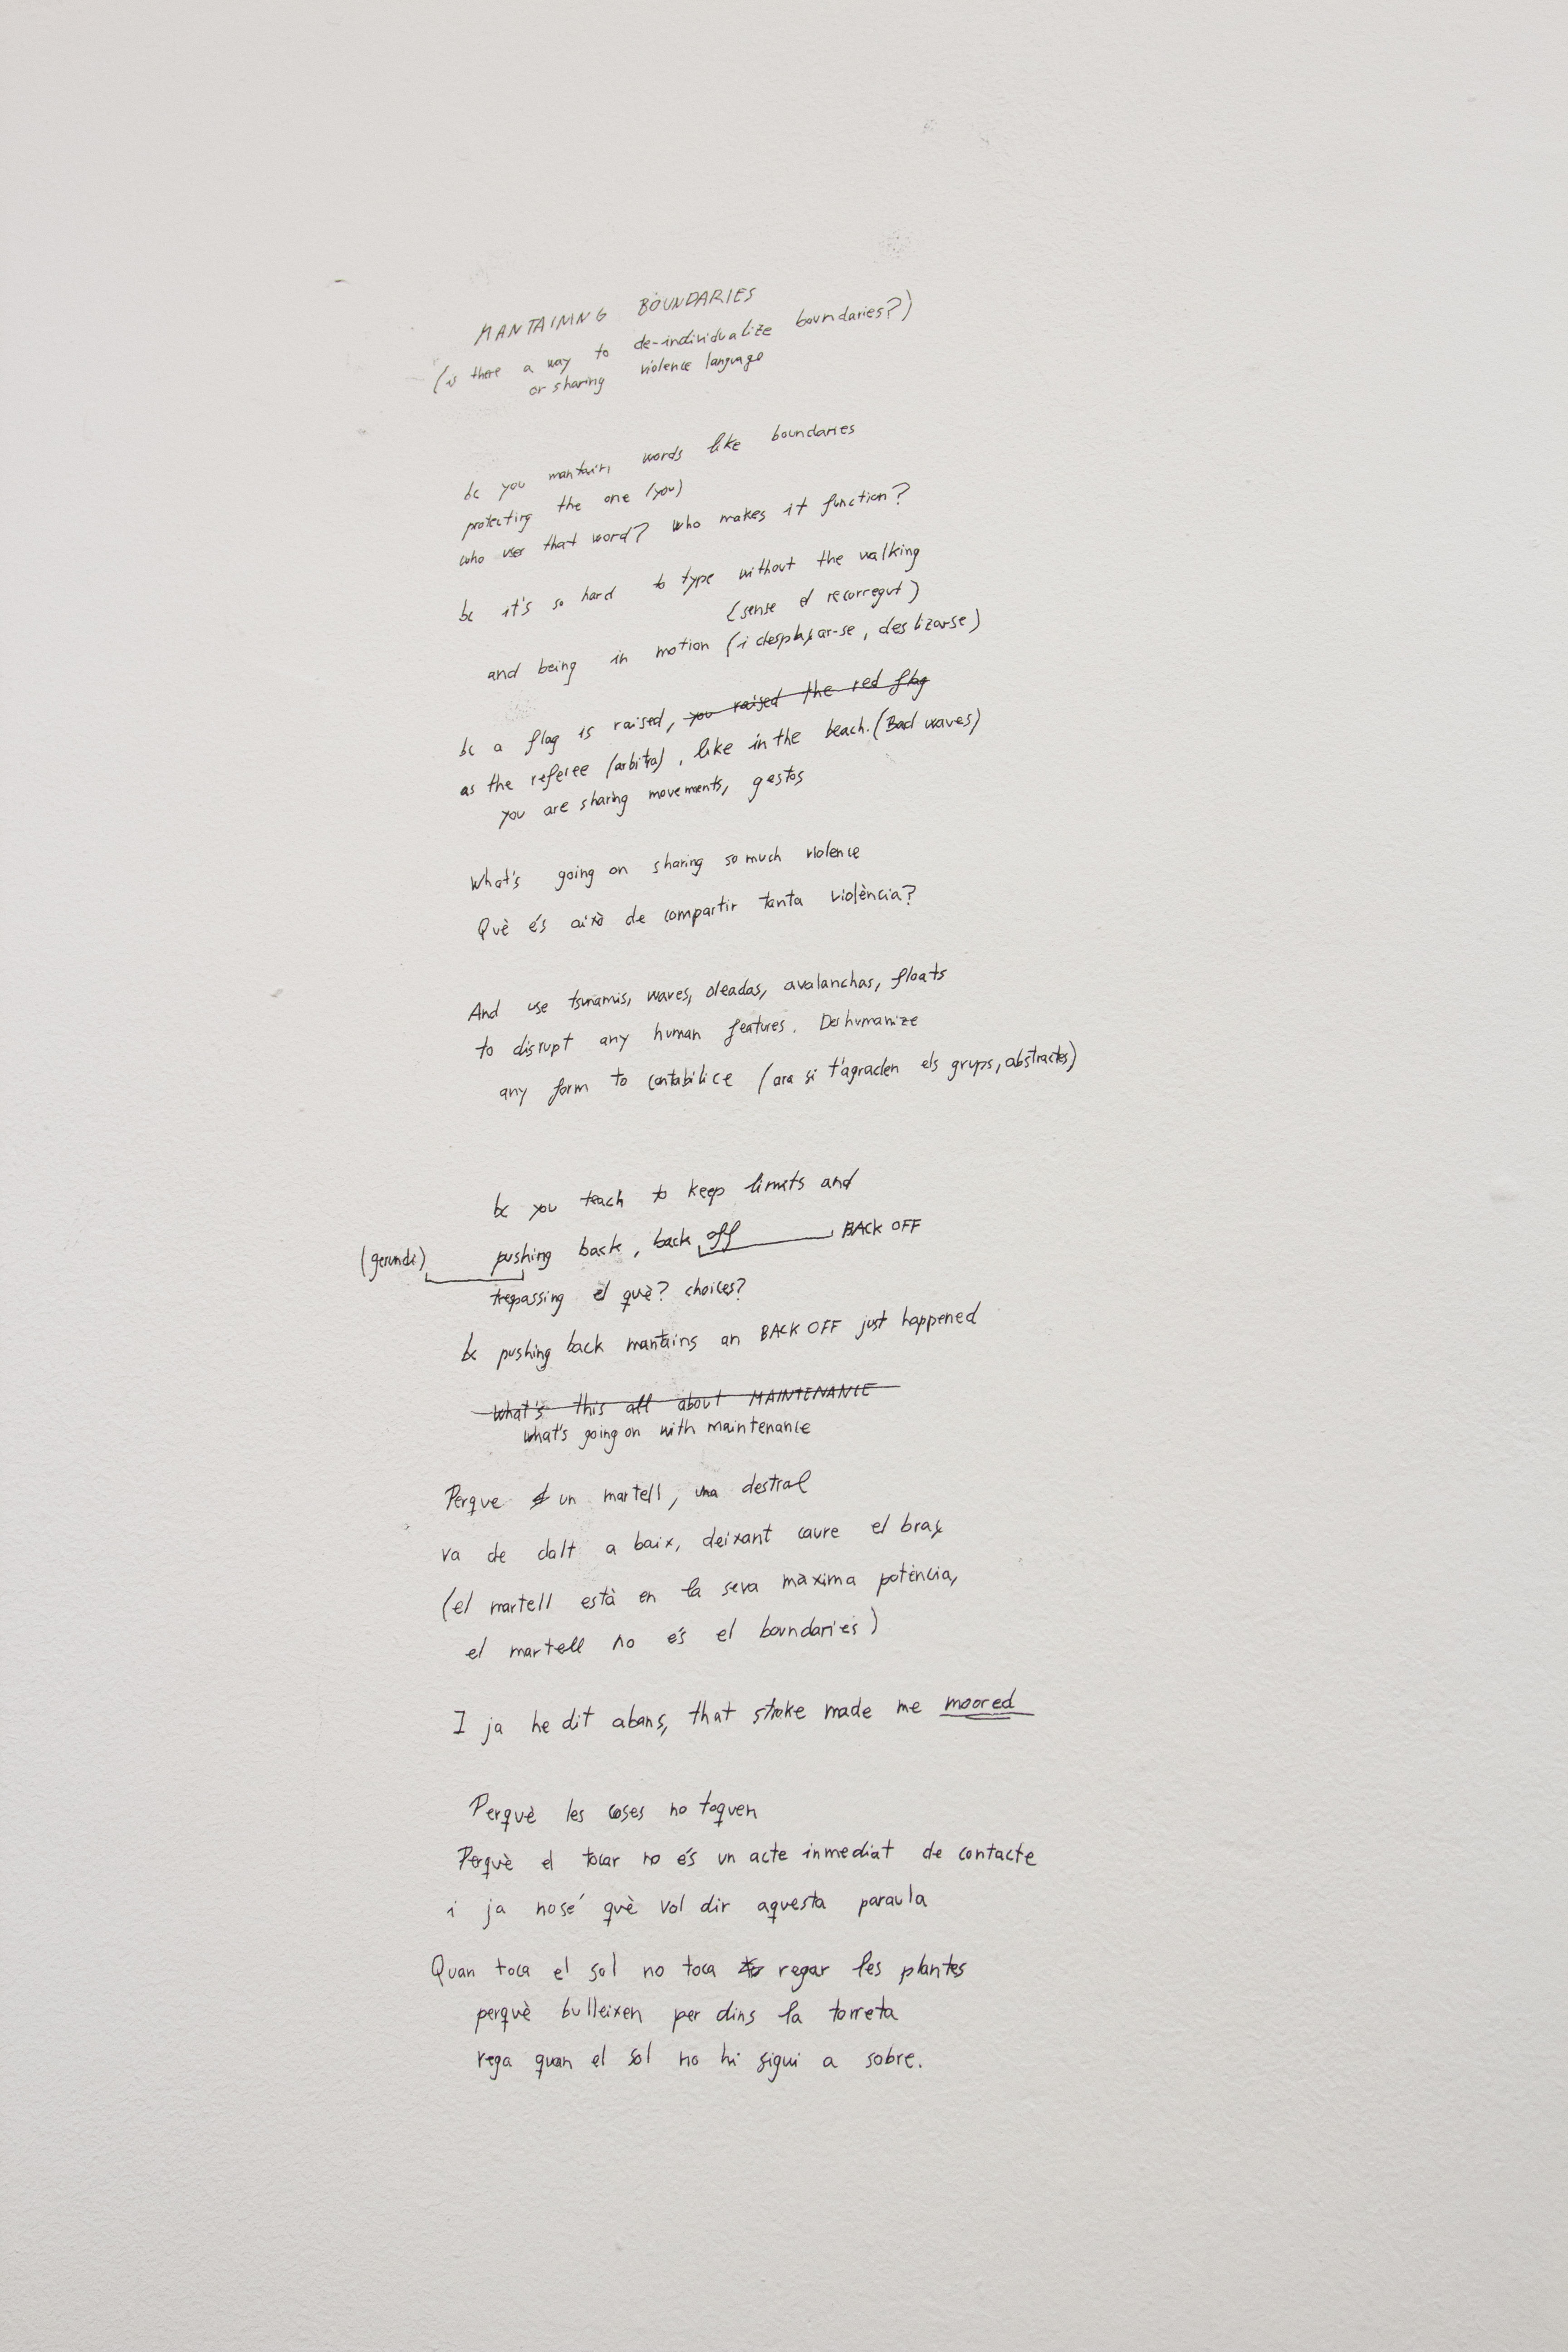 MANTAINING BOUNDARIES
(is there a way to de-individualize boundaries?)
or sharing violence language
bc you mantain words like boundaries
protecting the one (you)
who user that word? Who makes it function?
bc it's so hard to type without the walking
(sense el recorregut)
and being in motion (i desplaçar-se, deslizarse)
bc a flag is raised, you raised the red flag
as the referee (arbitra), like in the beach. (Bad waves)
you are sharing movements, gestos
What's going on sharing so much violence
Què és això de compartir tanta violència?
And use tsunamis, waves, oleadas, avalanchas, floats
to disrupt any human features. Deshumanize
any form to contabilice (ara si t'agraden els grups, abstractes)
bc you teach to keep limits and
(gerundi) pushing back, back off BACK OFF
trepassing el què? choices?
bc pushing back mantains an BACK OFF just happened
What's this all about MAINTENANCE
what's going on with maintenance
Perque un martell, una destral
va de dalt a baix, deixant caure el braç
(el martell està en la seva màxima potència,
el martell no és el boundaries)
I ja he dit abans, that stroke made me moored
Perquè les coses no toquen
Perquè el tocar no és un acte inmediat de contacte
i ja nosé què vol dir aquesta paraula
Quan toca el sol no toca regar les plantes
perquè bulleixen per dins la torreta
rega quan el sol no hi sigui a sobre.